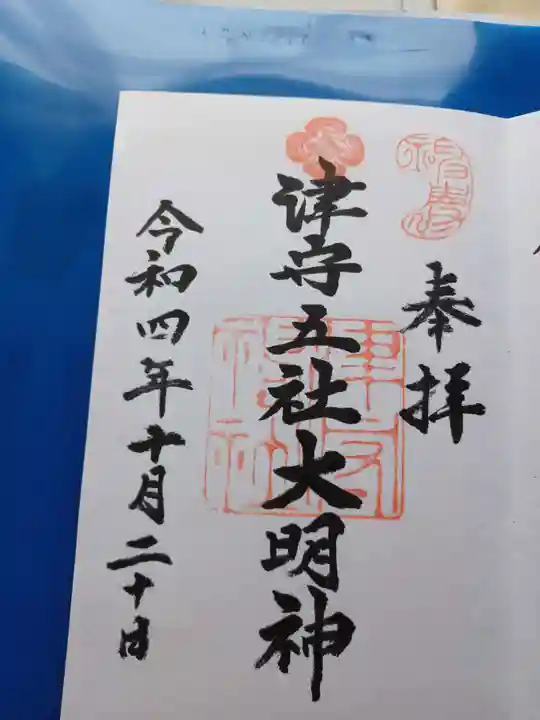 奉拝
津守五社大明神
津守
神社
令和四年十月二十日